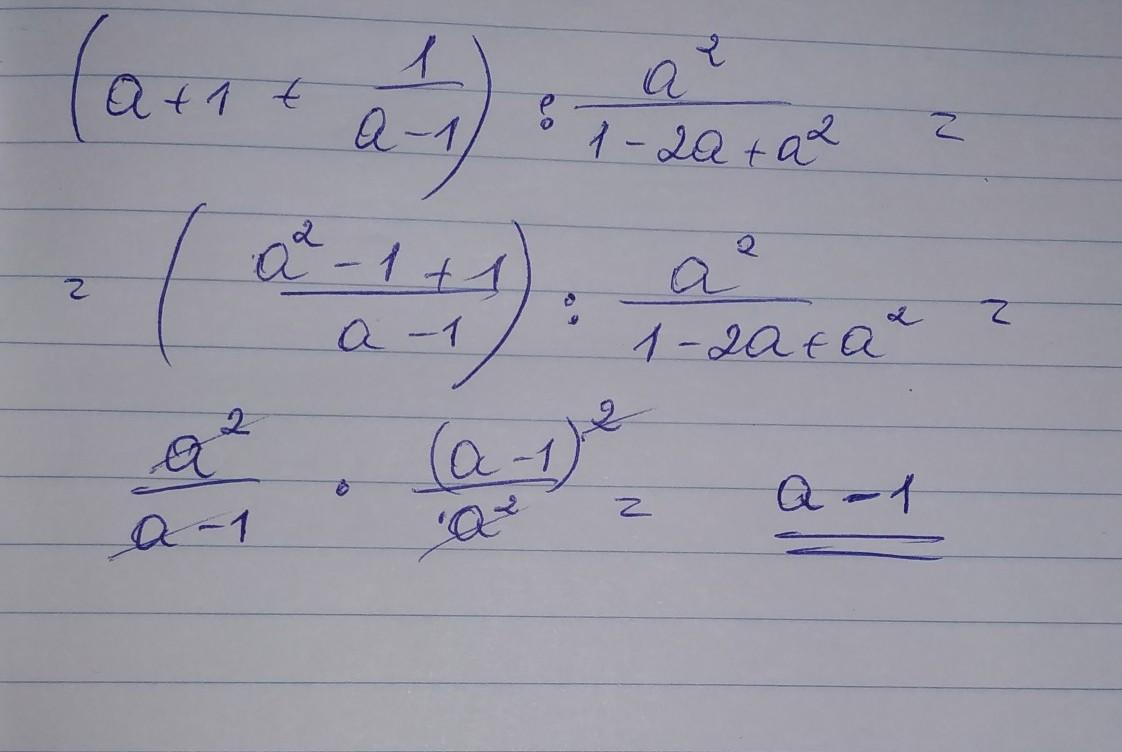 (a+1 + 1/(a-1)) : a²/(1-2a+a²) =
= ((a²-1+1)/(a-1)) : a²/(1-2a+a²) =
a²/(a-1) · (a-1)²/a² = a-1